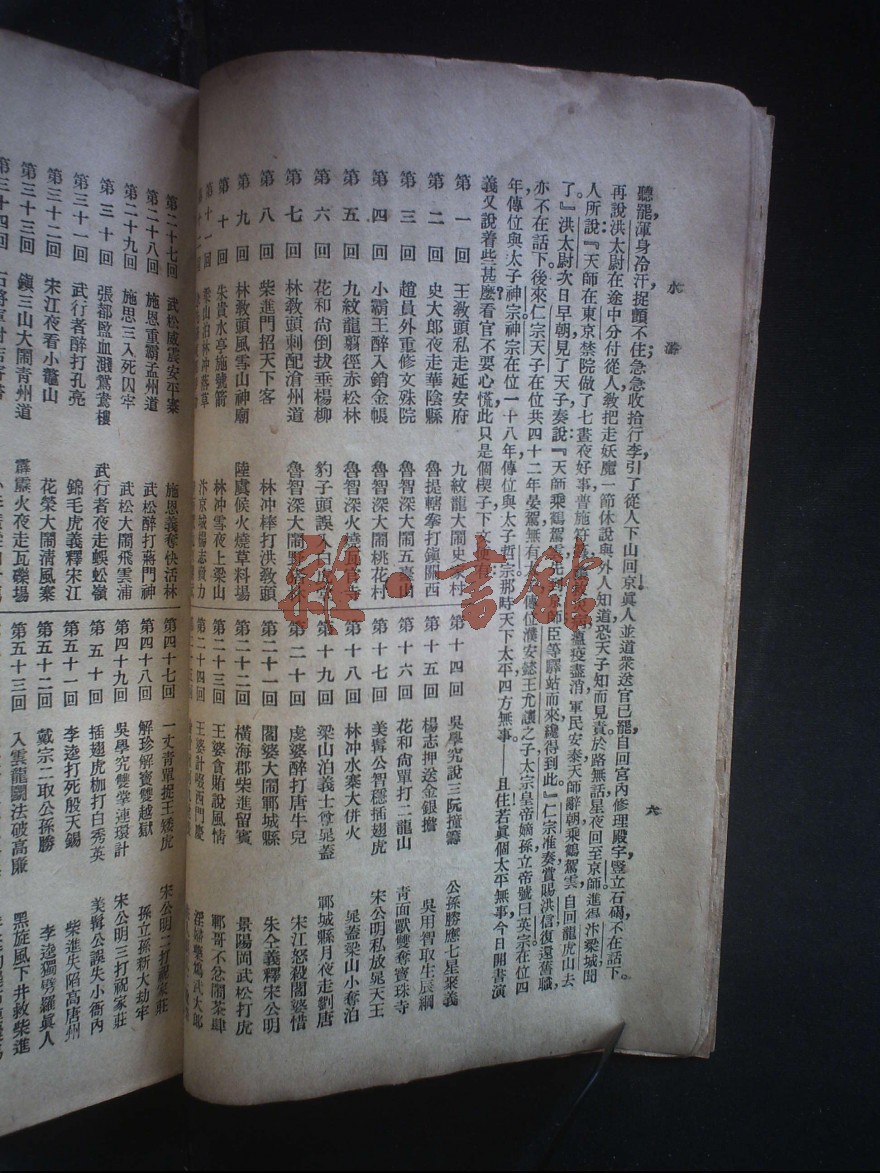 水滸
六
聽罷，渾身冷汗，捉顫不住；急急收拾行李，引了從人下山回京。眞人並道衆送官已罷，自回宮內修理殿宇，豎立石碣，不在話下。
再說洪太尉在途中分付從人，教把走妖魔一節休說與外人知道，恐天子知而見責。於路無話，星夜回至京師，進得汴梁城，聞
人所說：『天師在東京禁院做了七晝夜好事，普施符籙，禳救災病，瘟疫盡消，軍民安泰。天師辭朝，乘鶴駕雲，自回龍虎山去
了。』洪太尉次日早朝，見了天子，奏說：『天師乘鶴駕雲，先到京師，臣等驛站而來，纔得到此。』仁宗准奏，賞賜洪信，復還舊職，
亦不在話下。後來仁宗天子在位共四十二年晏駕，無有太子，傳位濮安懿王允讓之子，太宗皇帝嫡孫，立帝號曰英宗。在位四
年，傳位與太子神宗。神宗在位一十八年，傳位與太子哲宗。那時天下太平，四方無事——且住！若眞個太平無事，今日開書演
義又說着些甚麼？看官不要心慌，此只是個楔子，下文便有：
第一回 王教頭私走延安府 九紋龍大鬧史家村
第二回 史大郎夜走華陰縣 魯提轄拳打鎭關西
第三回 趙員外重修文殊院 魯智深大鬧五臺山
第四回 小霸王醉入銷金帳 花和尙大鬧桃花村
第五回 九紋龍翦徑赤松林 魯智深火燒瓦官寺
第六回 花和尙倒拔垂楊柳 豹子頭誤入白虎堂
第七回 林教頭刺配滄州道 魯智深大鬧野豬林
第八回 柴進門招天下客 林沖棒打洪教頭
第九回 林教頭風雪山神廟 陸虞候火燒草料場
第十回 朱貴水亭施號箭 林沖雪夜上梁山
第十一回 梁山泊林沖落草 汴京城楊志賣刀
第十四回 吳學究說三阮撞籌 公孫勝應七星聚義
第十五回 楊志押送金銀擔 吳用智取生辰綱
第十六回 花和尙單打二龍山 靑面獸雙奪寶珠寺
第十七回 美髯公智穩插翅虎 宋公明私放晁天王
第十八回 林沖水寨大併火 晁蓋梁山小奪泊
第十九回 梁山泊義士尊晁蓋 鄆城縣月夜走劉唐
第二十回 虔婆醉打唐牛兒 宋江怒殺閻婆惜
第二十一回 閻婆大鬧鄆城縣 朱仝義釋宋公明
第二十二回 橫海郡柴進留賓 景陽岡武松打虎
第二十三回 王婆貪賄說風情 鄆哥不忿鬧茶肆
第二十四回 王婆計啜西門慶 淫婦藥鴆武大郎
第二十七回 武松威震安平寨 施恩義奪快活林
第二十八回 施恩重霸孟州道 武松醉打蔣門神
第二十九回 施恩三入死囚牢 武松大鬧飛雲浦
第三十回 張都監血濺鴛鴦樓 武行者夜走蜈蚣嶺
第三十一回 武行者醉打孔亮 錦毛虎義釋宋江
第三十二回 宋江夜看小鼇山 花榮大鬧淸風寨
第三十三回 鎭三山大鬧靑州道 霹靂火夜走瓦礫場
第三十四回
第四十七回 一丈靑單捉王矮虎 宋公明二打祝家莊
第四十八回 解珍解寶雙越獄 孫立孫新大劫牢
第四十九回 吳學究雙掌連環計 宋公明三打祝家莊
第五十回 插翅虎枷打白秀英 美髯公誤失小衙內
第五十一回 李逵打死殷天錫 柴進失陷高唐州
第五十二回 戴宗二取公孫勝 李逵獨劈羅眞人
第五十三回 入雲龍鬭法破高廉 黑旋風下井救柴進
雜·書館